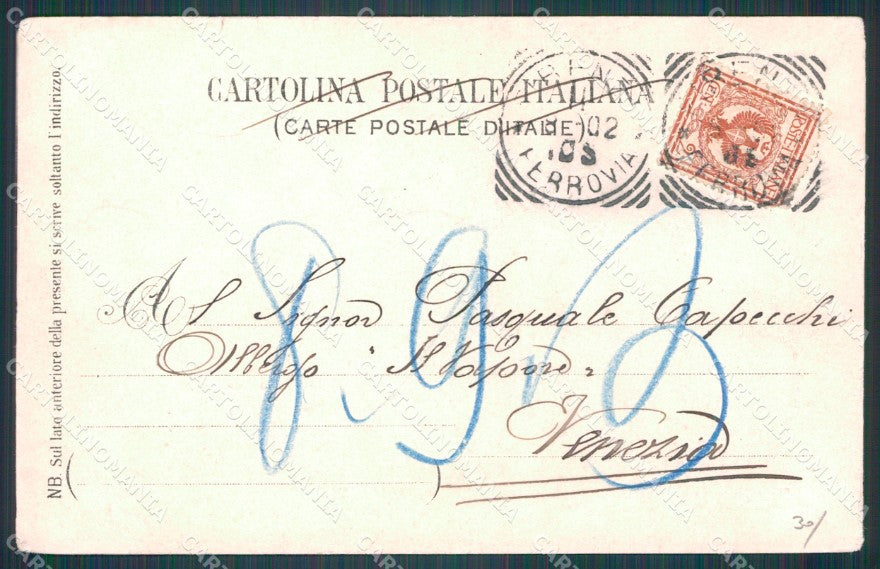 CARTOLINA POSTALE ITALIANA
(CARTE POSTALE D'ITALIE)
02
FERROVIA
POSTE ITALIANE
FERROVIA
Al Signor Pasquale Capecchi
Albergo "Il Vapore"
Venezia
NB. Sul lato anteriore della presente si scrive soltanto l'indirizzo.
30/
CARTOLINOMANIA